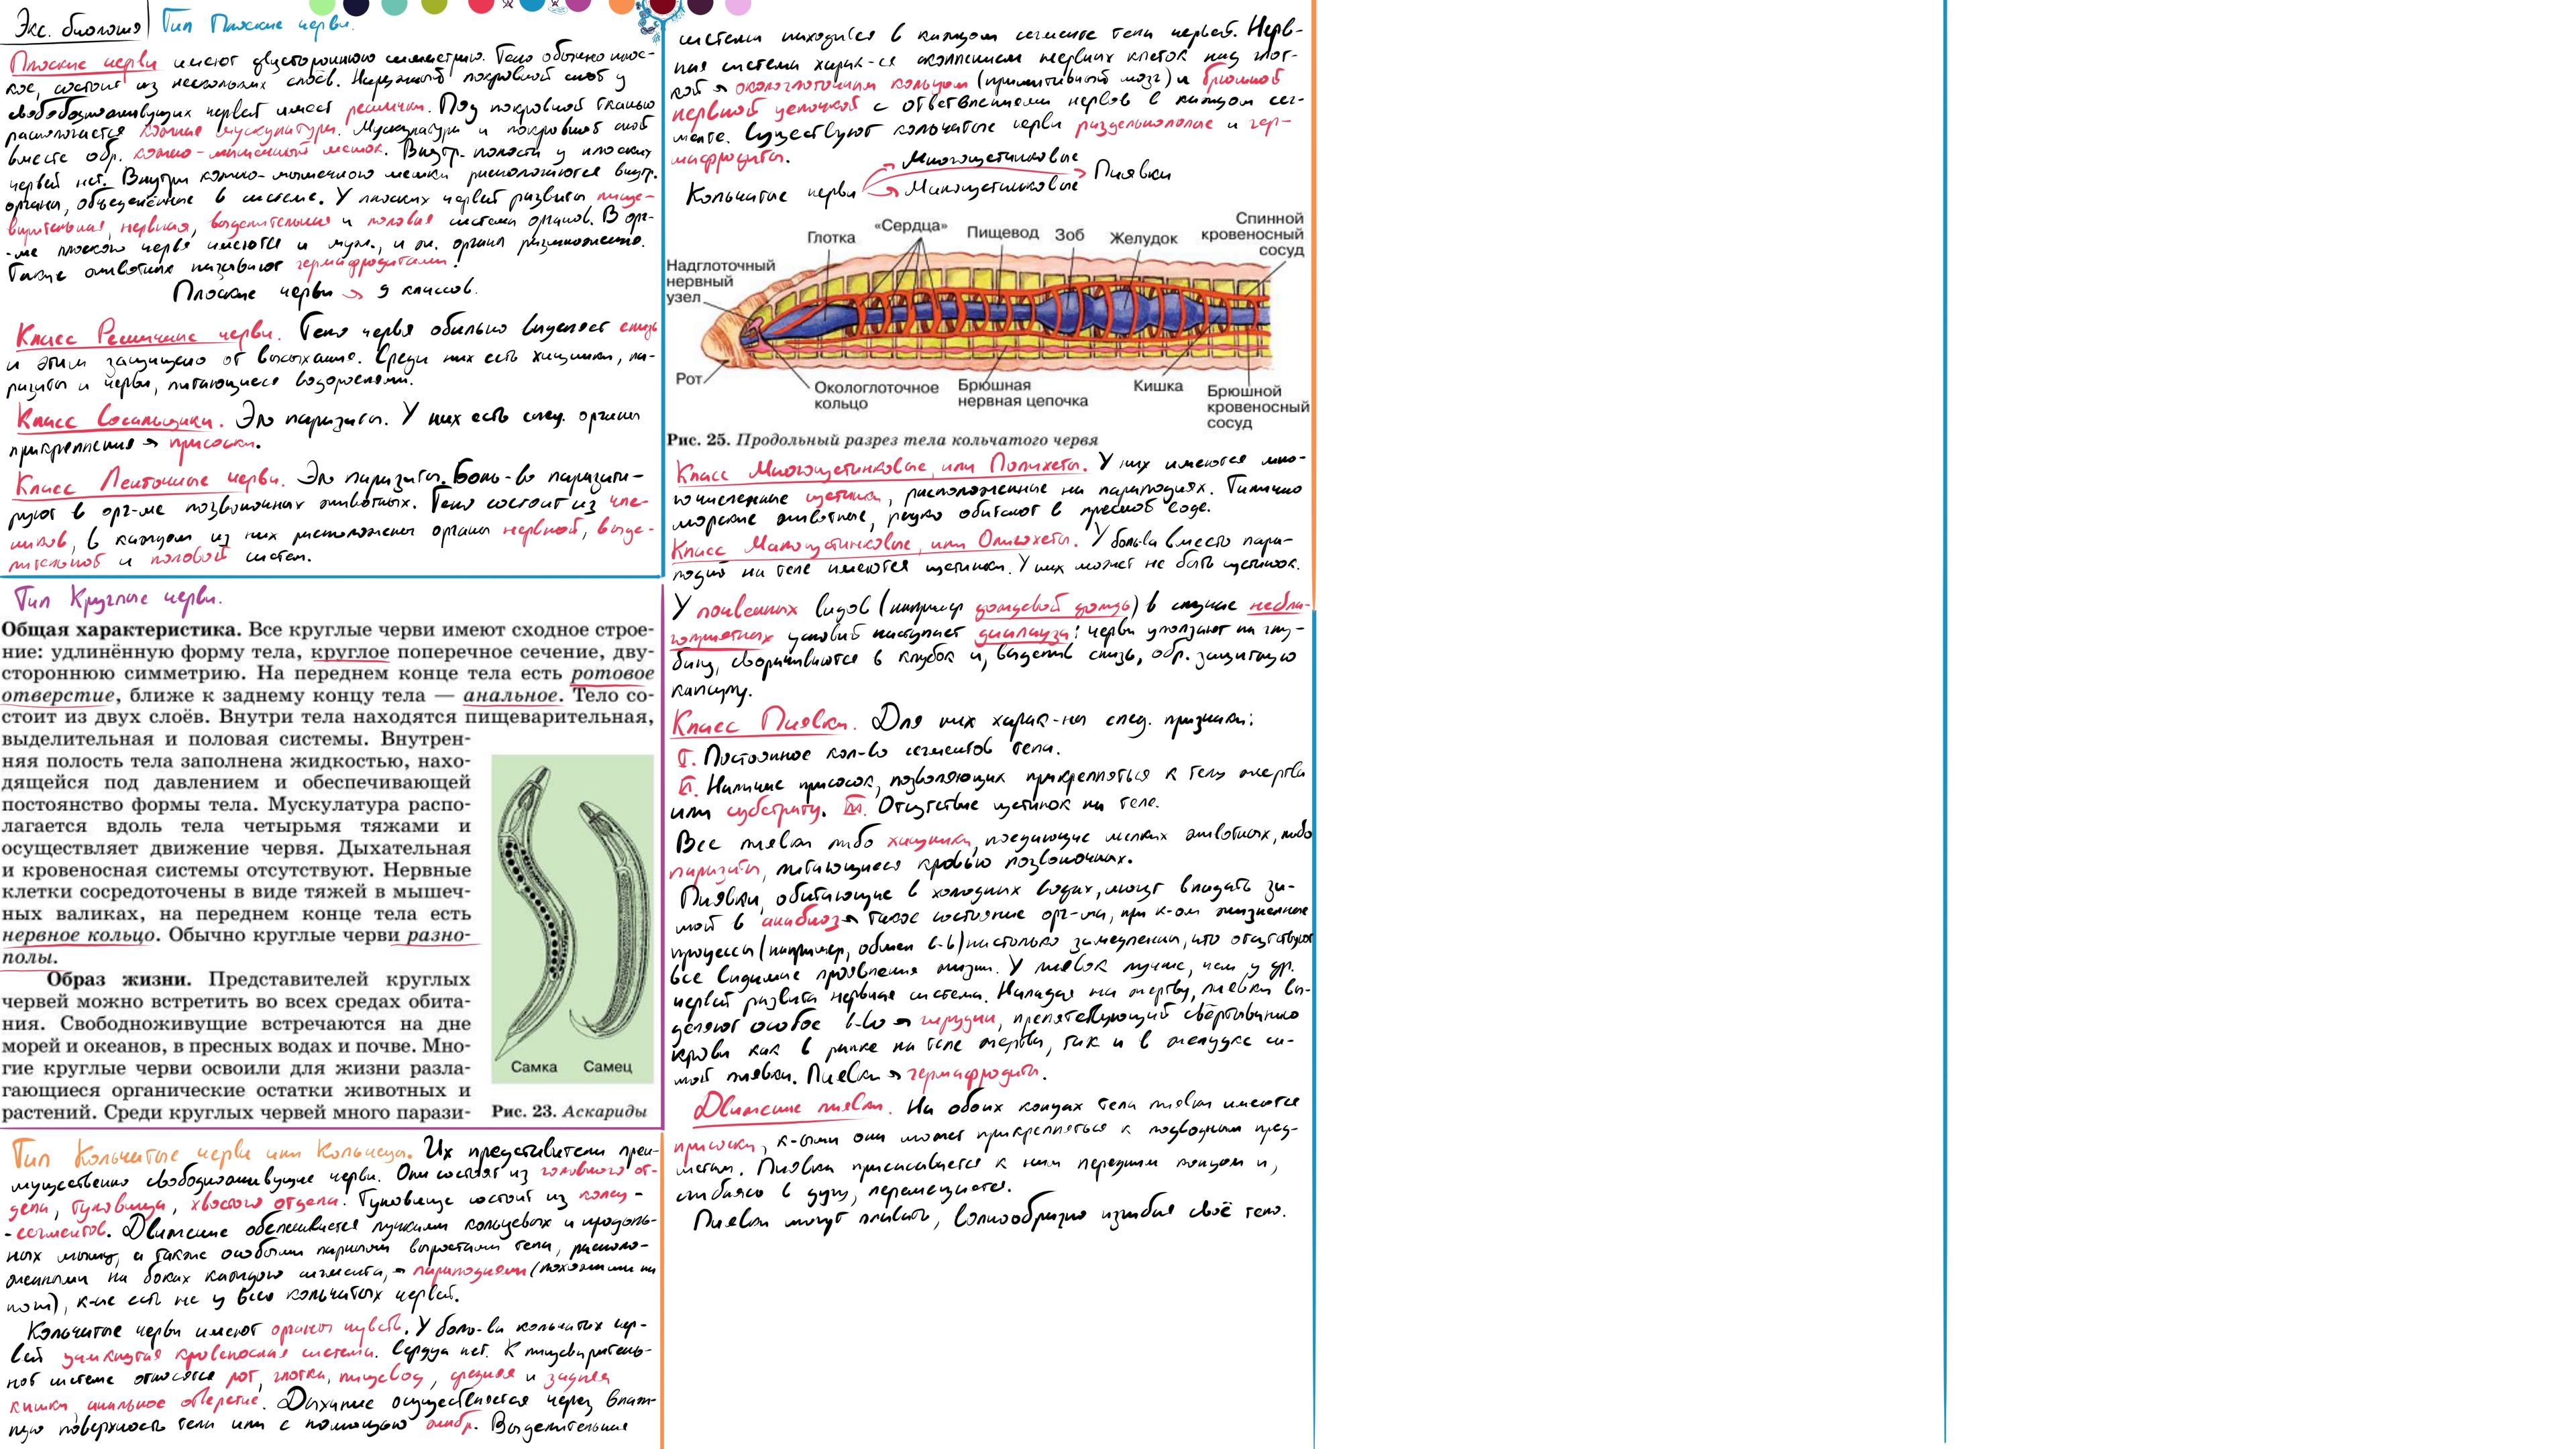 Экс. биология
Тип Плоские черви.
Плоские черви имеют двустороннюю симметрию. Тело обычно плос-
кое, состоит из нескольких слоёв. Наружный покровный слой у
свободноживущих червей имеет реснички. Под покровной тканью
располагается кожная мускулатура. Мускулатура и покровный слой
вместе обр. кожно-мышечный мешок. Внутр. полости у плоских
червей нет. Внутри кожно-мышечного мешка располагаются внутр.
органы, объединённые в системы. У плоских червей развиты пище-
варительная, нервная, выделительная и половая системы органов. В орг-
-ме плоского червя имеются и муж., и ж. органы размножения.
Такие животные называют гермафродитами!
Плоские черви → 9 классов.
Класс Ресничные черви. Тело червя обильно выделяет слизь
и этим защищено от высыхания. Среди них есть хищники, па-
разиты и черви, питающиеся водорослями.
Класс Сосальщики. Это паразиты. У них есть спец. органы
прикрепления → присоски.
Класс Ленточные черви. Это паразиты. Боль-во паразити-
руют в орг-ме позвоночных животных. Тело состоит из чле-
ников, в каждом из них расположены органы нервной, выде-
лительной и половой систем.
Тип Круглые черви.
Общая характеристика. Все круглые черви имеют сходное строе-
ние: удлинённую форму тела, круглое поперечное сечение, дву-
стороннюю симметрию. На переднем конце тела есть ротовое
отверстие, ближе к заднему концу тела — анальное. Тело со-
стоит из двух слоёв. Внутри тела находятся пищеварительная,
выделительная и половая системы. Внутрен-
няя полость тела заполнена жидкостью, нахо-
дящейся под давлением и обеспечивающей
постоянство формы тела. Мускулатура распо-
лагается вдоль тела четырьмя тяжами и
осуществляет движение червя. Дыхательная
и кровеносная системы отсутствуют. Нервные
клетки сосредоточены в виде тяжей в мышеч-
ных валиках, на переднем конце тела есть
нервное кольцо. Обычно круглые черви разно-
полы.
Образ жизни. Представителей круглых
червей можно встретить во всех средах обита-
ния. Свободноживущие встречаются на дне
морей и океанов, в пресных водах и почве. Мно-
гие круглые черви освоили для жизни разла-
гающиеся органические остатки животных и
растений. Среди круглых червей много парази-
Самка Самец
Рис. 23. Аскариды
Тип Кольчатые черви или Кольчецы. Их представители преи-
мущественно свободноживущие черви. Они состоят из головного от-
дела, туловища, хвостого отдела. Туловище состоит из колец-
-сегментов. Движение обеспечивается пучками кольцевых и продоль-
ных мышц, а также особыми парными выростами тела, располо-
женными на боках каждого сегмента, → параподиями (похожими на
ноги), к-ые есть не у всех кольчатых червей.
Кольчатые черви имеют органы чувств. У боль-ва кольчатых чер-
вей замкнутая кровеносная система. Сердца нет. К пищеваритель-
ной системе относятся рот, глотка, пищевод, средняя и задняя
кишки, анальное отверстие. Дыхание осуществляется через влаж-
ную поверхность тела или с помощью жабр. Выделительная
система находится в каждом сегменте тела червей. Нерв-
ная система харак-ся скоплением нервных клеток над глот-
кой → окологлоточным кольцом (примитивный мозг) и брюшной
нервной цепочкой с ответвлениями нервов в каждом сег-
менте. Существуют кольчатые черви раздельнополые и гер-
мафродиты.
Кольчатые черви
Многощетинковые
Малощетинковые
Пиявки
Глотка
«Сердца»
Пищевод
Зоб
Желудок
Спинной
кровеносный
сосуд
Надглоточный
нервный
узел
Рот
Окологлоточное
кольцо
Брюшная
нервная цепочка
Кишка
Брюшной
кровеносный
сосуд
Рис. 25. Продольный разрез тела кольчатого червя
Класс Многощетинковые, или Полихеты. У них имеются мно-
гочисленные щетинки, расположенные на параподиях. Типично
морские животные, редко обитают в пресной воде.
Класс Малощетинковые, или Олигохеты. У боль-ва вместо пара-
подий на теле имеются щетинки. У них может не быть щетинок.
У почвенных видов (например дождевой дождь) в случае небла-
гоприятных условий наступает диапауза: черви уползают на глу-
бину, сворачиваются в клубок и, выделив слизь, обр. защитную
капсулу.
Класс Пиявки. Для них харак-ны след. признаки:
I. Постоянное кол-во сегментов тела.
II. Наличие присосок, позволяющих прикрепляться к телу жертвы
или субстрату. III. Отсутствие щетинок на теле.
Все пиявки либо хищники, поедающие мелких животных, либо
паразиты, питающиеся кровью позвоночных.
Пиявки, обитающие в холодных водах, могут впадать зи-
мой в анабиоз → такое состояние орг-ма, при к-ом жизненные
процессы (например, обмен в-в) настолько замедлены, что отсутствуют
все видимые проявления жизни. У пиявок лучше, чем у др.
червей развита нервная система. Нападая на жертву, пиявки вы-
деляют особое в-во → гирудин, препятствующий свёртыванию
крови как в ранке на теле жертвы, так и в желудке са-
мой пиявки. Пиявки → гермафродиты.
Движение пиявки. На обоих концах тела пиявки имеются
присоски, к-ыми они может прикрепляться к подводным пред-
метам. Пиявка присасывается к ним передним концом и,
сгибаясь в дугу, перемещается.
Пиявки могут плавать, волнообразно изгибая своё тело.